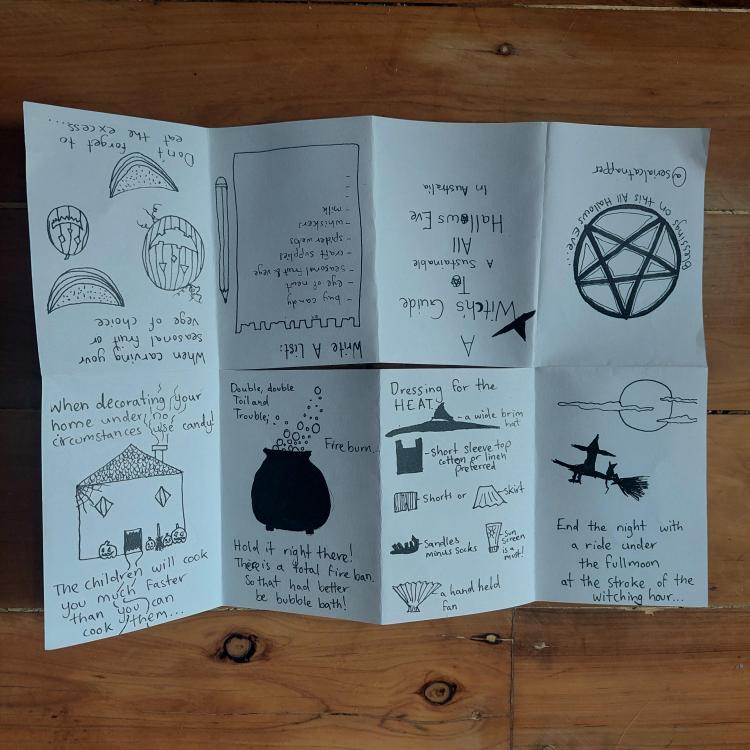 A
Witch's Guide
To
A
Sustainable
All
Hallows Eve
In Australia
Write A List:
- buy candy
- eye of newt
- seasonal fruit & vege
- craft supplies
- spider webs
- whiskers
- milk
-
-
-
When carving your
seasonal fruit or
vege of choice
Don't forget to
eat the excess...
When decorating your
home under no
circumstances use candy!
The children will cook
you much faster
than you can
cook them...
Double, double
Toil and
Trouble;
Fire burn...
Hold it right there!
There is a total fire ban.
So that had better
be bubble bath!
Dressing for the
HEAT.
- a wide brim
hat
- short sleeve top
cotten or linen
preferred
Shorts or
skirt
Sandles
minus socks
Sun
screen
is a
must!
a hand held
fan
End the night with
a ride under
the fullmoon
at the stroke of the
witching hour...
Blessings on this All Hallows Eve...
@serialcatnapper